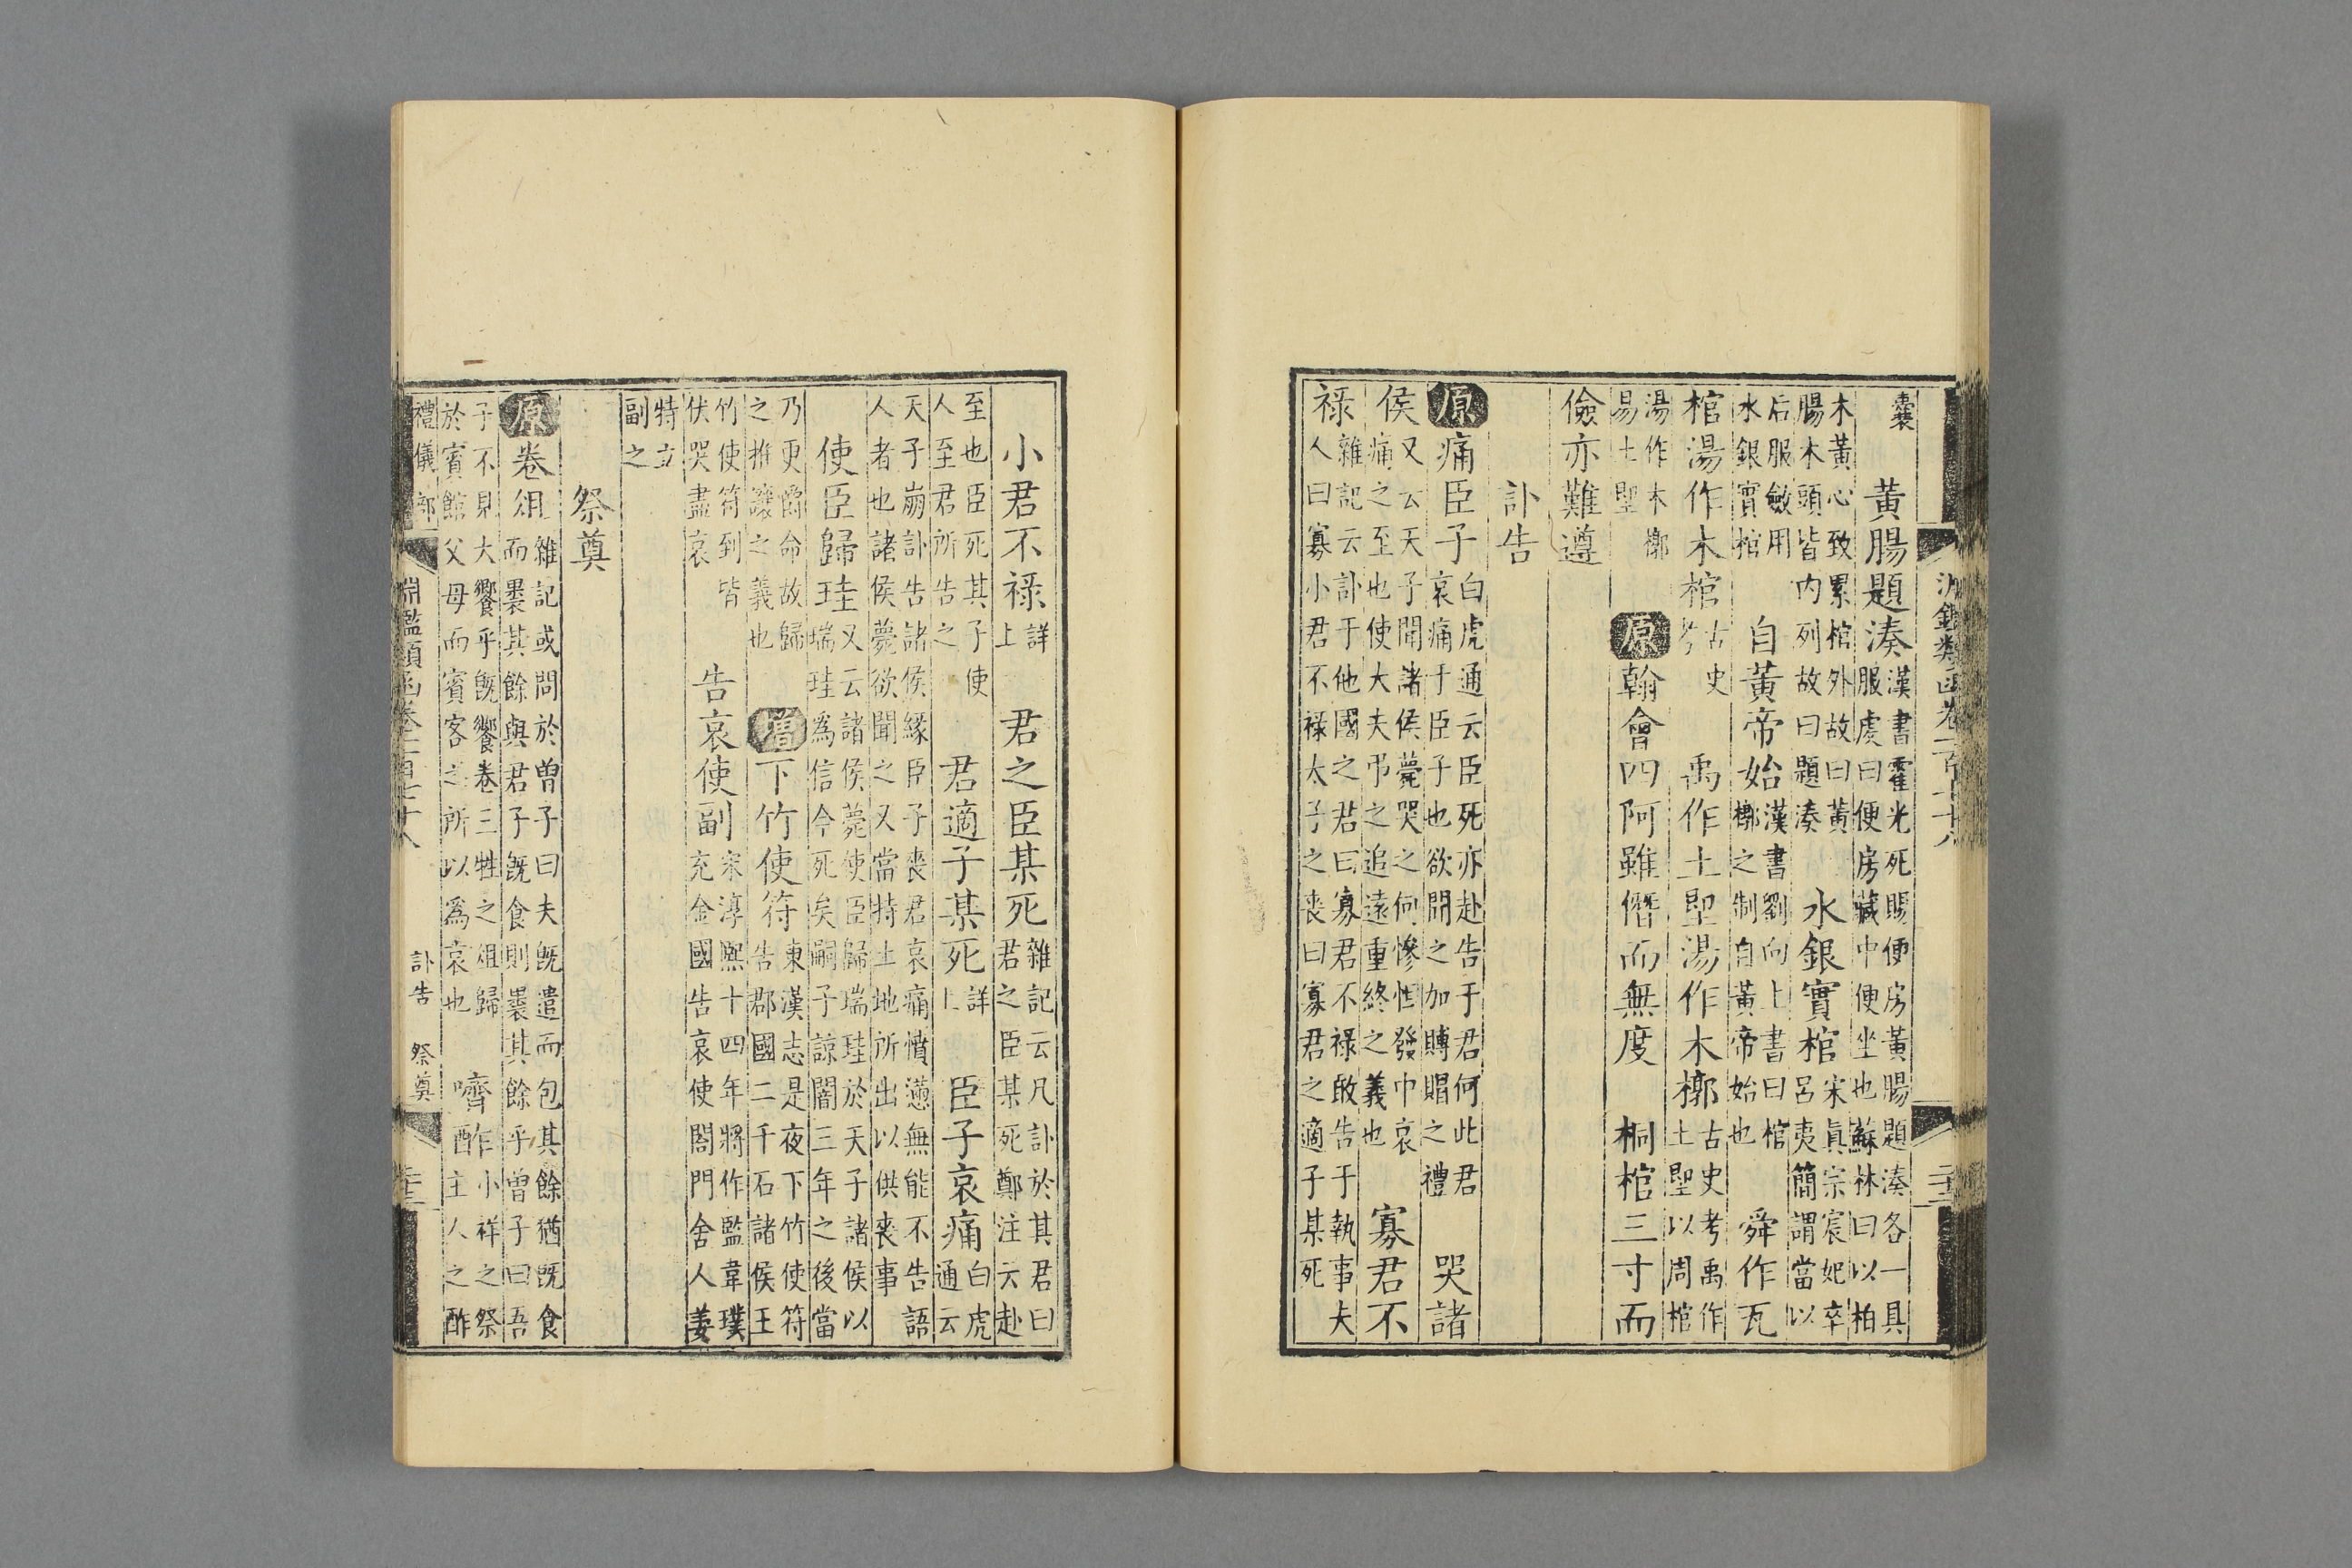 淵鑑類函卷一百七十八　二十二
囊　黃腸題湊漢書霍光死賜便房黃腸題湊各一具
服虔曰便房藏中便坐也蘇林曰以柏
木黃心致累棺外故曰黃
腸木頭皆内列故曰題湊　水銀實棺宋真宗宸妃卒
吕夷簡謂當以
后服斂用
水銀實棺　自黃帝始漢書劉向上書曰棺
槨之制自黃帝始也　舜作瓦
棺湯作木棺古史
考　禹作土堲湯作木槨古史考禹作
土堲以周棺
湯作木槨
易土堲　原翰會四阿雖僭而無度　桐棺三寸而
儉亦難遵
訃告
原痛臣子白虎通云臣死亦赴告于君何此君
哀痛于臣子也欲聞之加賻賵之禮　哭諸
侯又云天子聞諸侯薨哭之何慘怛發中哀
痛之至也使大夫弔之追遠重終之義也　寡君不
禄雜記云訃于他國之君曰寡君不禄敢告于執事夫
人曰寡小君不禄太子之喪曰寡君之適子某死
小君不禄詳
上　君之臣某死雜記云凡訃於其君曰
君之臣某死鄭注云赴
至也臣死其子使
人至君所告之　君適子某死詳
上　臣子哀痛白虎
通云
天子崩訃告諸侯緣臣子喪君哀痛憤懣無能不告語
人者也諸侯薨欲聞之又當特土地所出以供喪事
使臣歸珪又云諸侯薨使臣歸瑞珪於天子諸侯以
瑞珪爲信今死矣嗣子諒闇三年之後當
乃更爵命故歸
之推讓之義也　增下竹使符東漢志是夜下竹使符
告郡國二千石諸侯王
竹使符到皆
伏哭盡哀　告哀使副宋淳熙十四年將作監韋璞
充金國告哀使閤門舍人姜
特立
副之
祭奠
原卷俎雜記或問於曾子曰夫既遣而包其餘猶既食
而裹其餘與君子既食則裹其餘乎曾子曰吾
子不見大饗乎既饗卷三牲之俎歸
於賓館父母而賓客之所以爲哀也　嚌酢小祥之祭
主人之酢
禮儀部　淵鑑類函卷一百七十八　訃告　祭奠